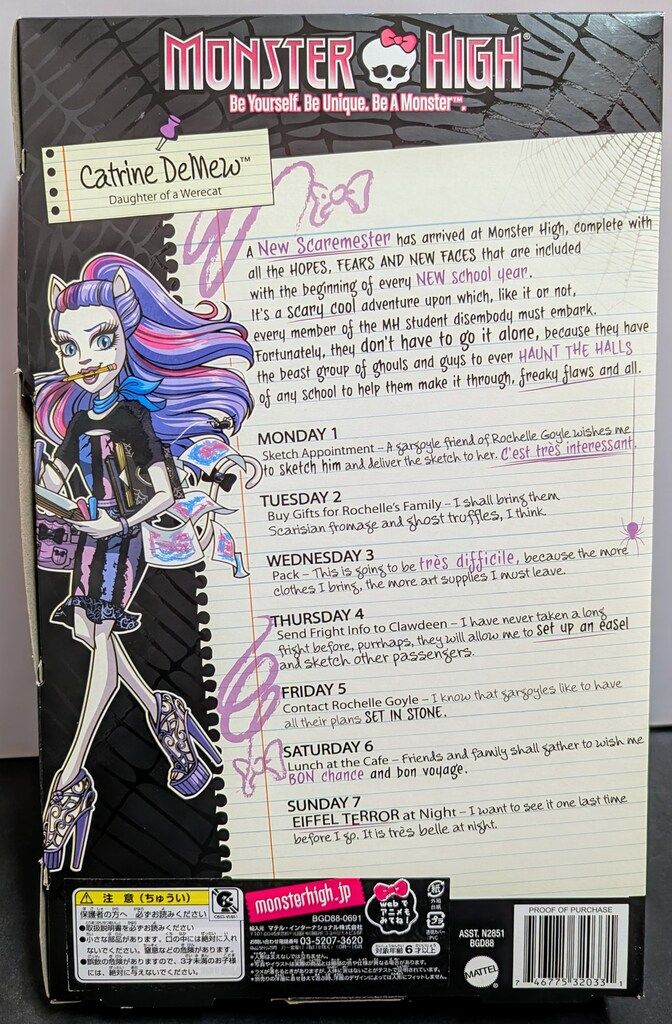 MONSTER HIGH®
Be Yourself. Be Unique. Be A Monster™.
Catrine DeMew™
Daughter of a Werecat
A New Scaremester has arrived at Monster High, complete with
all the HOPES, FEARS AND NEW FACES that are included
with the beginning of every NEW school year.
It's a scary cool adventure upon which, like it or not,
every member of the MH student disembody must embark.
Fortunately, they don't have to go it alone, because they have
the beast group of ghouls and guys to ever HAUNT THE HALLS
of any school to help them make it through, freaky flaws and all.
MONDAY 1
Sketch Appointment – A gargoyle friend of Rochelle Goyle wishes me
to sketch him and deliver the sketch to her. C'est très interessant.
TUESDAY 2
Buy Gifts for Rochelle's Family – I shall bring them
Scarisian fromage and ghost truffles, I think.
WEDNESDAY 3
Pack – This is going to be très difficile, because the more
clothes I bring, the more art supplies I must leave.
THURSDAY 4
Send Fright Info to Clawdeen – I have never taken a long
fright before, purrhaps, they will allow me to set up an easel
and sketch other passengers.
FRIDAY 5
Contact Rochelle Goyle – I know that gargoyles like to have
all their plans SET IN STONE.
SATURDAY 6
Lunch at the Cafe – Friends and family shall gather to wish me
BON chance and bon voyage.
SUNDAY 7
EIFFEL TERROR at Night – I want to see it one last time
before I go. It is très belle at night.
注意(ちゅうい)
保護者の方へ 必ずお読みください
●取扱説明書を必ずお読みください
●小さな部品があります。口の中には絶対に入れ
ないでください。窒息などの危険があります。
●誤飲の危険がありますので、3才未満のお子様
には、絶対に与えないでください。
monsterhigh.jp
BGD88-0691
輸入元 マテル・インターナショナル株式会社
03-5207-3620
対象年齢 6才以上
webで
アニメも
みてね!
紙
外箱
台紙
プラ
PVC
ASST. N2851
BGD88
MATTEL
PROOF OF PURCHASE
7 46775 32033 1